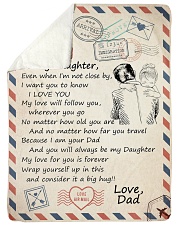 ARRIVAL
IMMIGRATION
Daughter,
Even when I'm not close by,
I want you to know
I LOVE YOU
My love will follow you,
wherever you go
No matter how old you are
And no matter how far you travel
Because I am your Dad
And you will always be my Daughter
My love for you is forever
Wrap yourself up in this
and consider it a big hug!!
Love,
Dad
LOVE
AIR MAIL